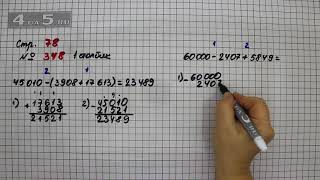 4auka5.RU
Стр. 78
№ 348 1 столбик
2 1
45010-(3908+17613)=23489
1) +17613
3908
21521
2) -45010
21521
23489
1 2
60000-2407+5849=
1) -60000
2407